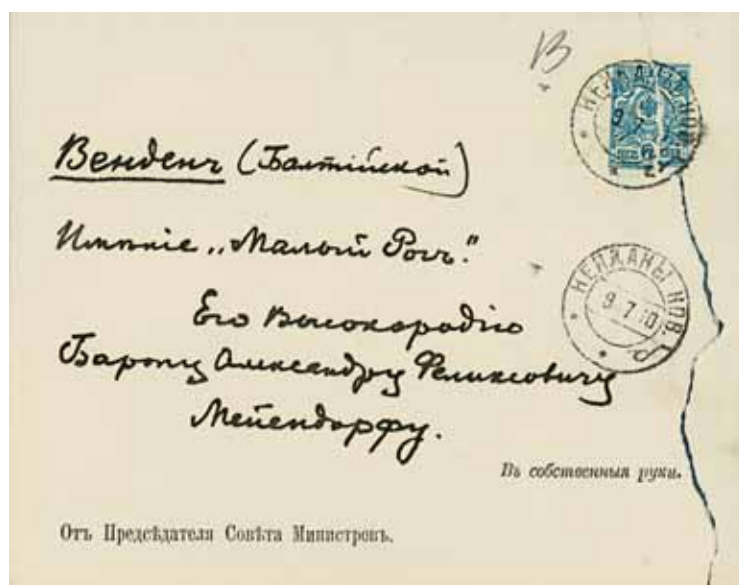 В
Венденъ (Балтійской)
Имѣніе „Малый Ропъ."
Его Высокородію
Барону Александру Феликсовичу
Мейендорфу.
Въ собственныя руки.
Отъ Предсѣдателя Совѣта Министровъ.
КЕЙДАНЫ КОВ. Г.
9 7 10